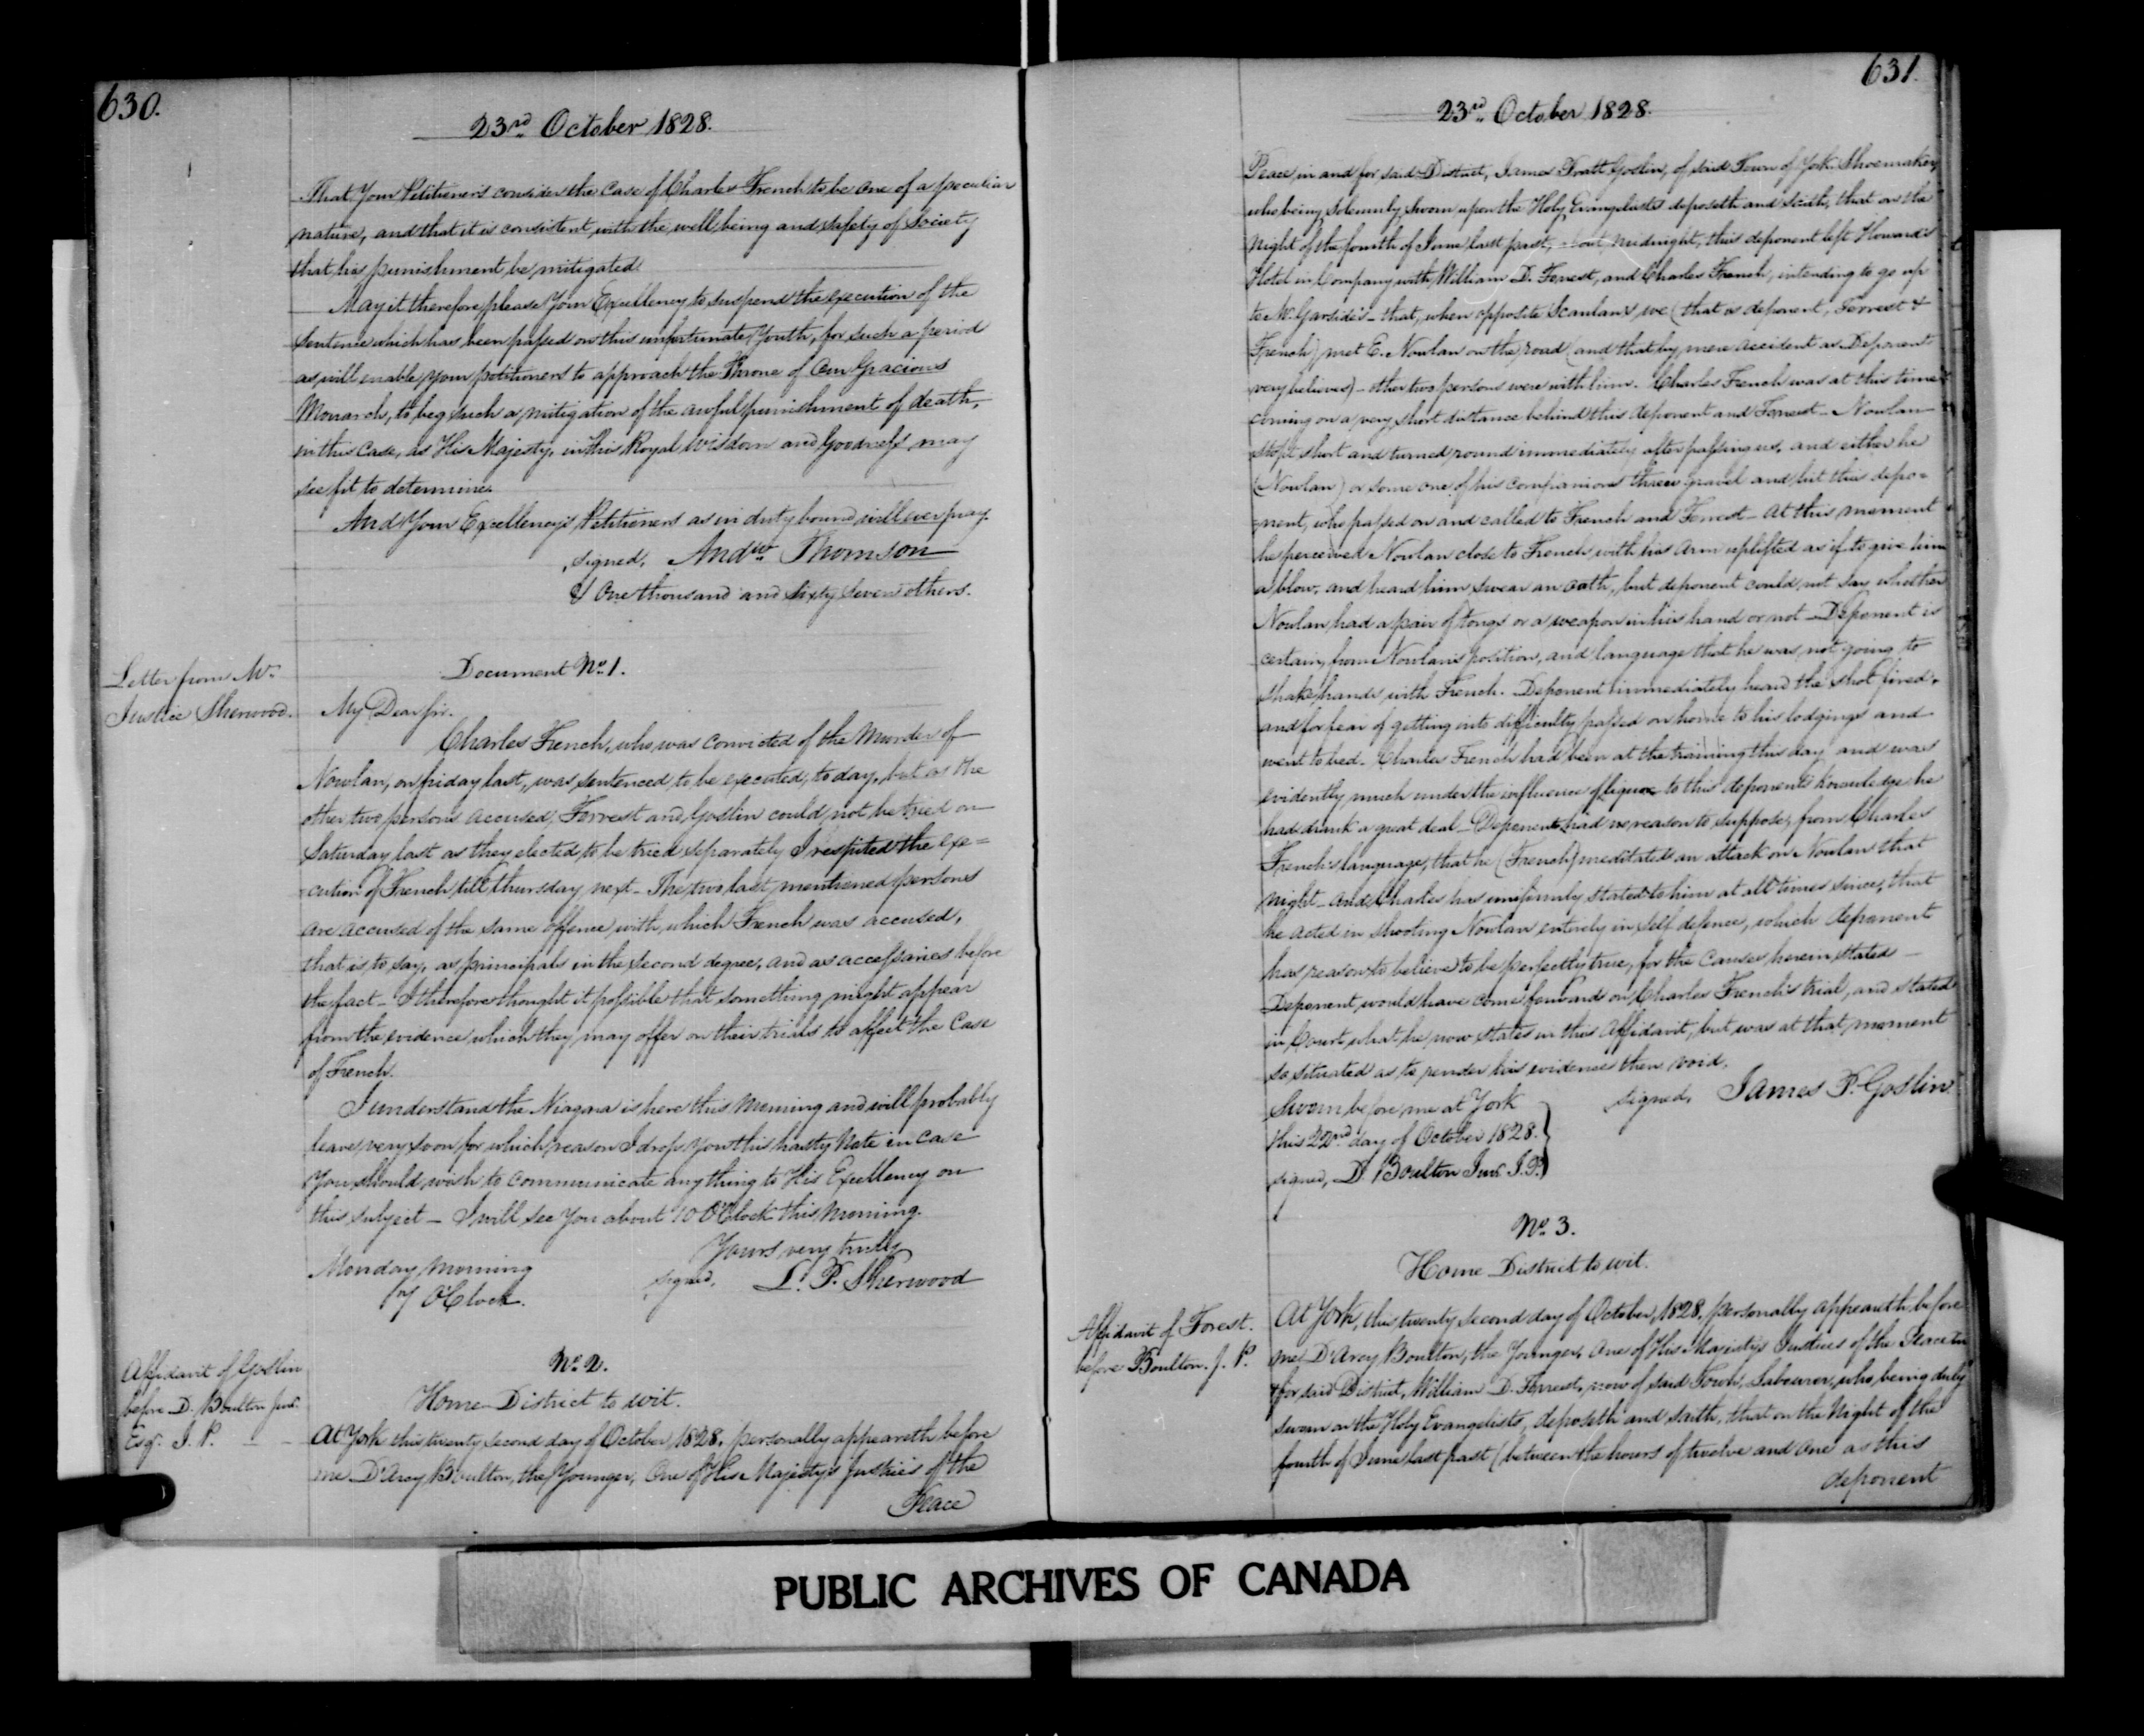 630.
23rd October 1828.
That Your Petitioners consider the Case of Charles French to be one of a peculiar
nature, and that it is consistent with the well being and safety of Society
that his punishment be mitigated.
May it therefore please Your Excellency to suspend the execution of the
Sentence which has been passed on this unfortunate Youth, for such a period
as will enable your petitioners to approach the Throne of Our Gracious
Monarch, to beg such a mitigation of the awful punishment of death,
in this Case, as His Majesty, in His Royal Wisdom and Goodness may
see fit to determine.
And Your Excellency's Petitioners as in duty bound will ever pray.
signed, Andw Thomson
& One thousand and sixty seven others.
Letter from Mr
Justice Sherwood.
Document No 1.
My Dear Sir.
Charles French, who was convicted of the Murder of
Nowlan, on friday last, was sentenced to be executed, to day, but as the
other two persons accused, Forrest and Goslin could not be tried on
Saturday last as they elected to be tried separately I respited the exe=
=cution of French till thursday next - The two last mentioned persons
are accused of the same offence with which French was accused,
that is to say, as principals in the second degree, and as accessaries before
the fact - I therefore thought it possible that something might appear
from the evidence which they may offer on their trials to affect the Case
of French.
I understand the Niagara is here this Morning and will probably
leave very soon for which reason I drop You this hasty Note in case
You should wish to communicate any thing to His Excellency on
this subject - I will see You about 10 O'Clock this Morning.
Yours very truly
Monday Morning
signed, L. P. Sherwood
7 O'Clock.
Affidavit of Goslin
before D. Boulton Junr.
Esqr. J. P.
No 2.
Home District to wit.
At York this twenty second day of October, 1828, personally appeareth before
me D'Arcy Boulton, the Younger, One of His Majesty's Justices of the
Peace
631.
23rd October 1828.
Peace, in and for said District, James Pratt Goslin, of said Town of York Shoemaker,
who being solemnly sworn upon the Holy Evangelists deposeth and saith, that on the
Night of the fourth of June last past, about midnight, this deponent left Howard's
Hotel in Company with William D. Forrest, and Charles French, intending to go up
to Mr Garside's - that, when opposite Scanlans, we (that is deponent, Forrest &
French) met E. Nowlan on the road (and that by mere accident as Deponent
very believes) - other two persons were with him. Charles French was at this time
coming on a very short distance behind this deponent and Forrest - Nowlan
stopt short and turned round immediately after passing us, and either he
(Nowlan) or some one of his companions threw gravel and hit this depo=
=nent, who passed on and called to French and Forrest - At this moment
he perceived Nowlan close to French with his arm uplifted as if to give him
a blow, and heard him swear an oath, but deponent could not say whether
Nowlan had a pair of tongs or a weapon in his hand or not - Deponent is
certain, from Nowlan's position, and language that he was not going to
shake hands with French. Deponent immediately heard the shot fired,
and for fear of getting into difficulty passed on home to his lodgings and
went to bed - Charles French had been at the training this day and was
evidently much under the influence of liquor to this deponents knowledge he
had drunk a great deal - Deponent had no reason to suppose, from Charles
French's language, that he (French) meditated an attack on Nowlan that
night - and Charles has uniformly stated to him at all times since, that
he acted in shooting Nowlan entirely in self defence, which deponent
has reason to believe to be perfectly true, for the Causes herein stated -
Deponent would have come forward on Charles French's trial, and stated
in Court what he now states in this Affidavit, but was at that moment
so situated as to render his evidence then void.
signed, James P. Goslin
Sworn before me at York
this 22nd day of October 1828.
signed, D. Boulton Junr J.P.
No 3.
Home District to wit.
Affidavit of Forest.
before Boulton. J. P.
At York, this twenty second day of October, 1828, personally appeareth before
me D'Arcy Boulton, the Younger, One of His Majesty's Justices of the Peace in
& for said District, William D. Forrest, now of said Town, Labourer, who, being duly
sworn on the Holy Evangelists, deposeth and saith, that on the Night of the
fourth of June last past (between the hours of twelve and one as this
deponent
PUBLIC ARCHIVES OF CANADA